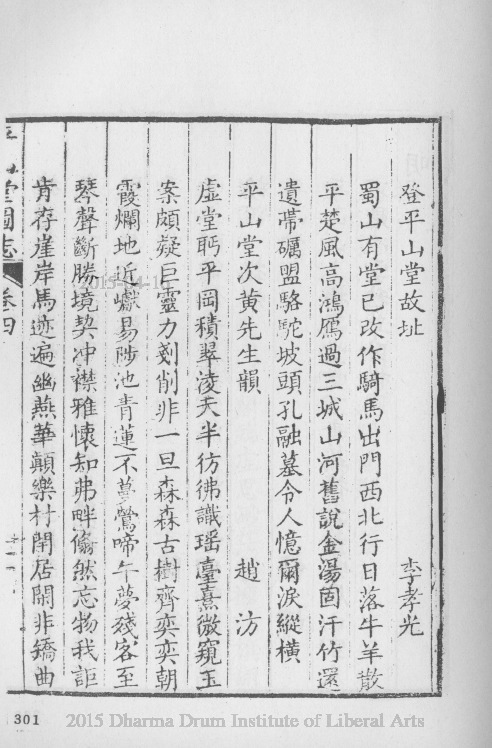 登平山堂故址 李孝光
蜀山有堂已改作騎馬出門西北行日落牛羊散
平楚風高鴻鴈過三城山河舊說金湯固汗竹還
遺帶礪盟駱駝坡頭孔融墓令人憶爾淚縱橫
平山堂次黃先生韻 趙汸
虛堂眄平岡積翠淩天半彷彿識瑶臺熹微窺玉
案頗疑巨靈力剗削非一旦森森古樹齊奕奕朝
霞爛地近巘易陟池青蓮不蔓鶯啼午夢殘客至
琴聲斷勝境契冲襟雅懷知弗畔翛然忘物我詎
肯存崖岸馬迹遍幽燕華顛樂村閈居閒非矯曲
平山堂圖志 卷四
301
2015 Dharma Drum Institute of Liberal Arts